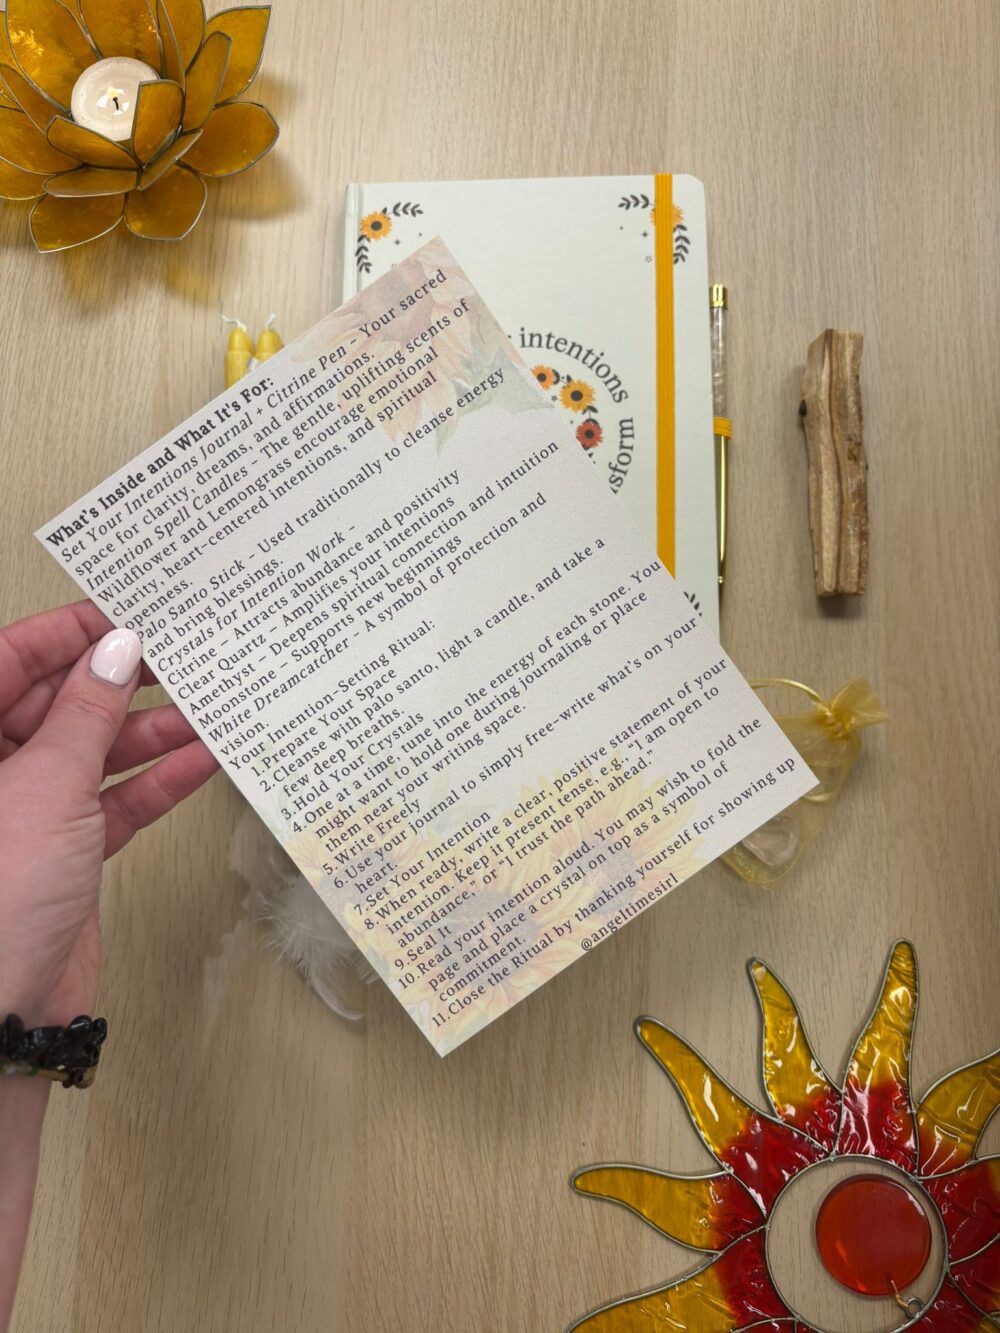 What's Inside and What It's For:
Set Your Intentions Journal + Citrine Pen - Your sacred
space for clarity, dreams, and affirmations.
Intention Spell Candles - The gentle, uplifting scents of
Wildflower and Lemongrass encourage emotional
clarity, heart-centered intentions, and spiritual
openness.
Palo Santo Stick - Used traditionally to cleanse energy
and bring blessings.
Crystals for Intention Work -
Citrine - Attracts abundance and positivity
Clear Quartz - Amplifies your intentions
Amethyst - Deepens spiritual connection and intuition
Moonstone - Supports new beginnings
White Dreamcatcher - A symbol of protection and
vision.
Your Intention-Setting Ritual:
1.Prepare Your Space
2.Cleanse with palo santo, light a candle, and take a
few deep breaths.
3.Hold Your Crystals
4.One at a time, tune into the energy of each stone. You
might want to hold one during journaling or place
them near your writing space.
5.Write Freely
6.Use your journal to simply free-write what's on your
heart.
7.Set Your Intention
8.When ready, write a clear, positive statement of your
intention. Keep it present tense, e.g., "I am open to
abundance," or "I trust the path ahead."
9.Seal It
10.Read your intention aloud. You may wish to fold the
page and place a crystal on top as a symbol of
commitment.
11.Close the Ritual by thanking yourself for showing up
@angeltimesirl
intentions